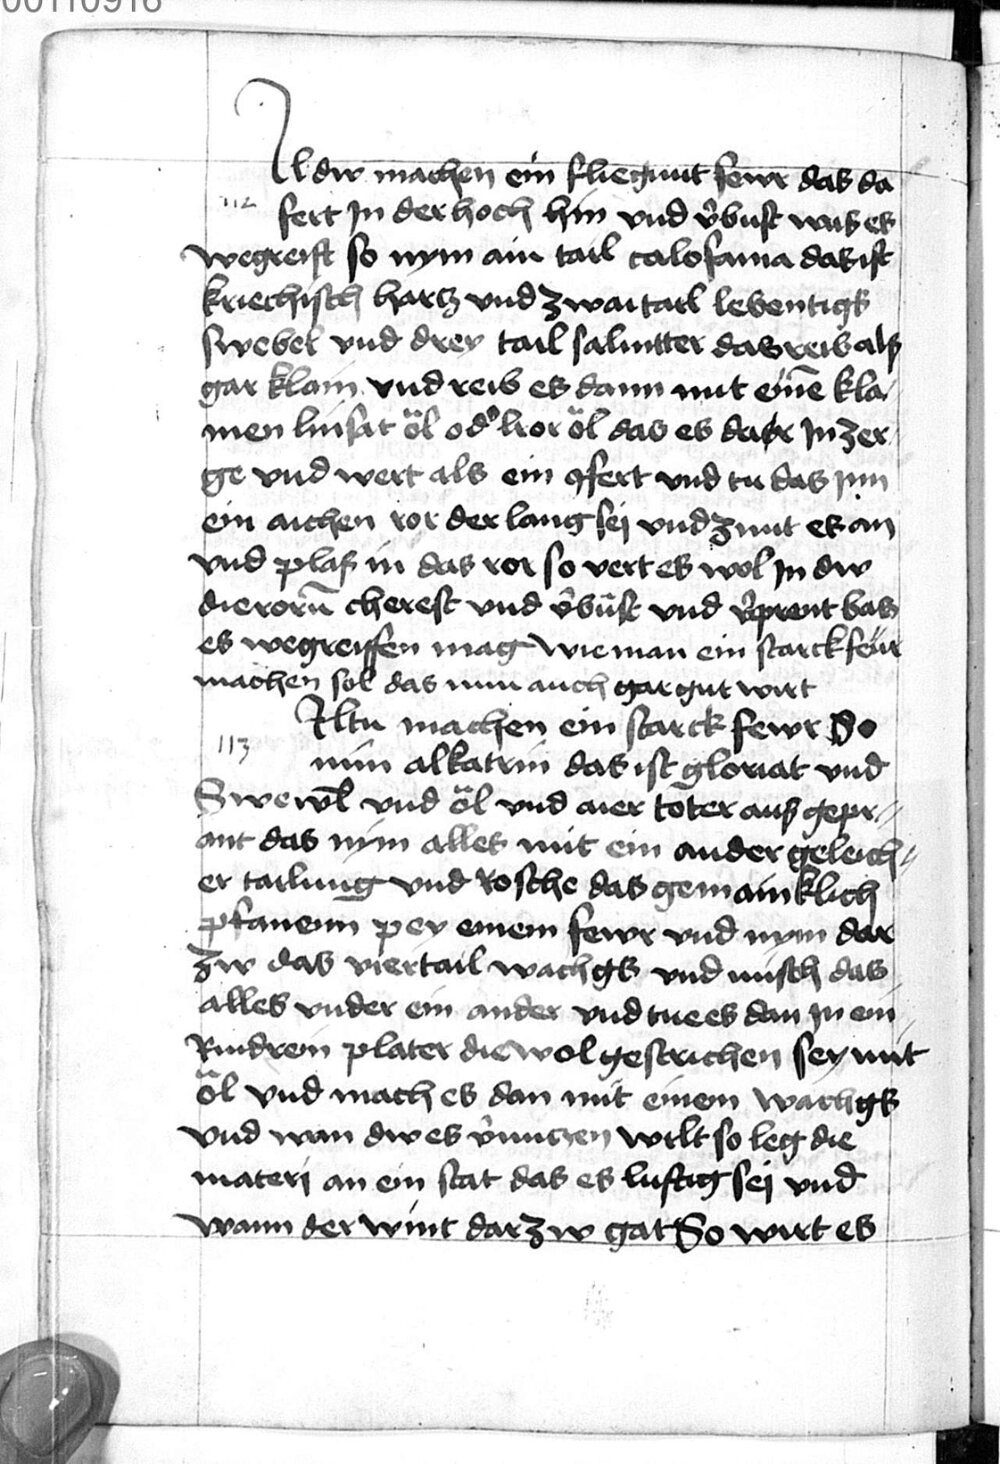 00110916
Wl dw machen ein fliegunt fewr das da
112 fert In der hoch hin vnd v̂bust was es
wegreift so nym ain tail calofania das ist
kriechisch hartz vnd zwai tail lebentigs
swebel vnd drey tail salnitter das reib als
gar klain vnd reib es dann mit eine̅ kla
men linsat öl od' lior öl das es dar In zer
ge vnd wert als ein 9fert vnd tu das jnn
ein aichen ror der lang sej vnd zunt es an
vnd plas in das ror so vert es wol In dw
die rorn̅ cherest vnd v̂bust vnd v̂prent bas
es wegreiffen mag wie man ein starck feur
machen sol das nun auch gar gut wirt
Wltu machen ein starck fewr So
113 nim alkatrin das ist gloriat vnd
Swewl vnd öl vnd aier toter aus gepr
ant das nym alles mit ein ander geleich
er tailung vnd Rosche das gemainklich
pfanenn pey einem fewr vnd nym dar
zw das viertail wachgs vnd misch das
alles vnder ein ander vnd tue es dan In ein
Rindrein plater die wol gestrichen sey mit
öl vnd mach es dan mit einem wachgs
vnd wan dw es v̂nuczen wilt so leg die
materj an ein stat das es luftig sej vnd
wann der wint dar zw gat So wirt es